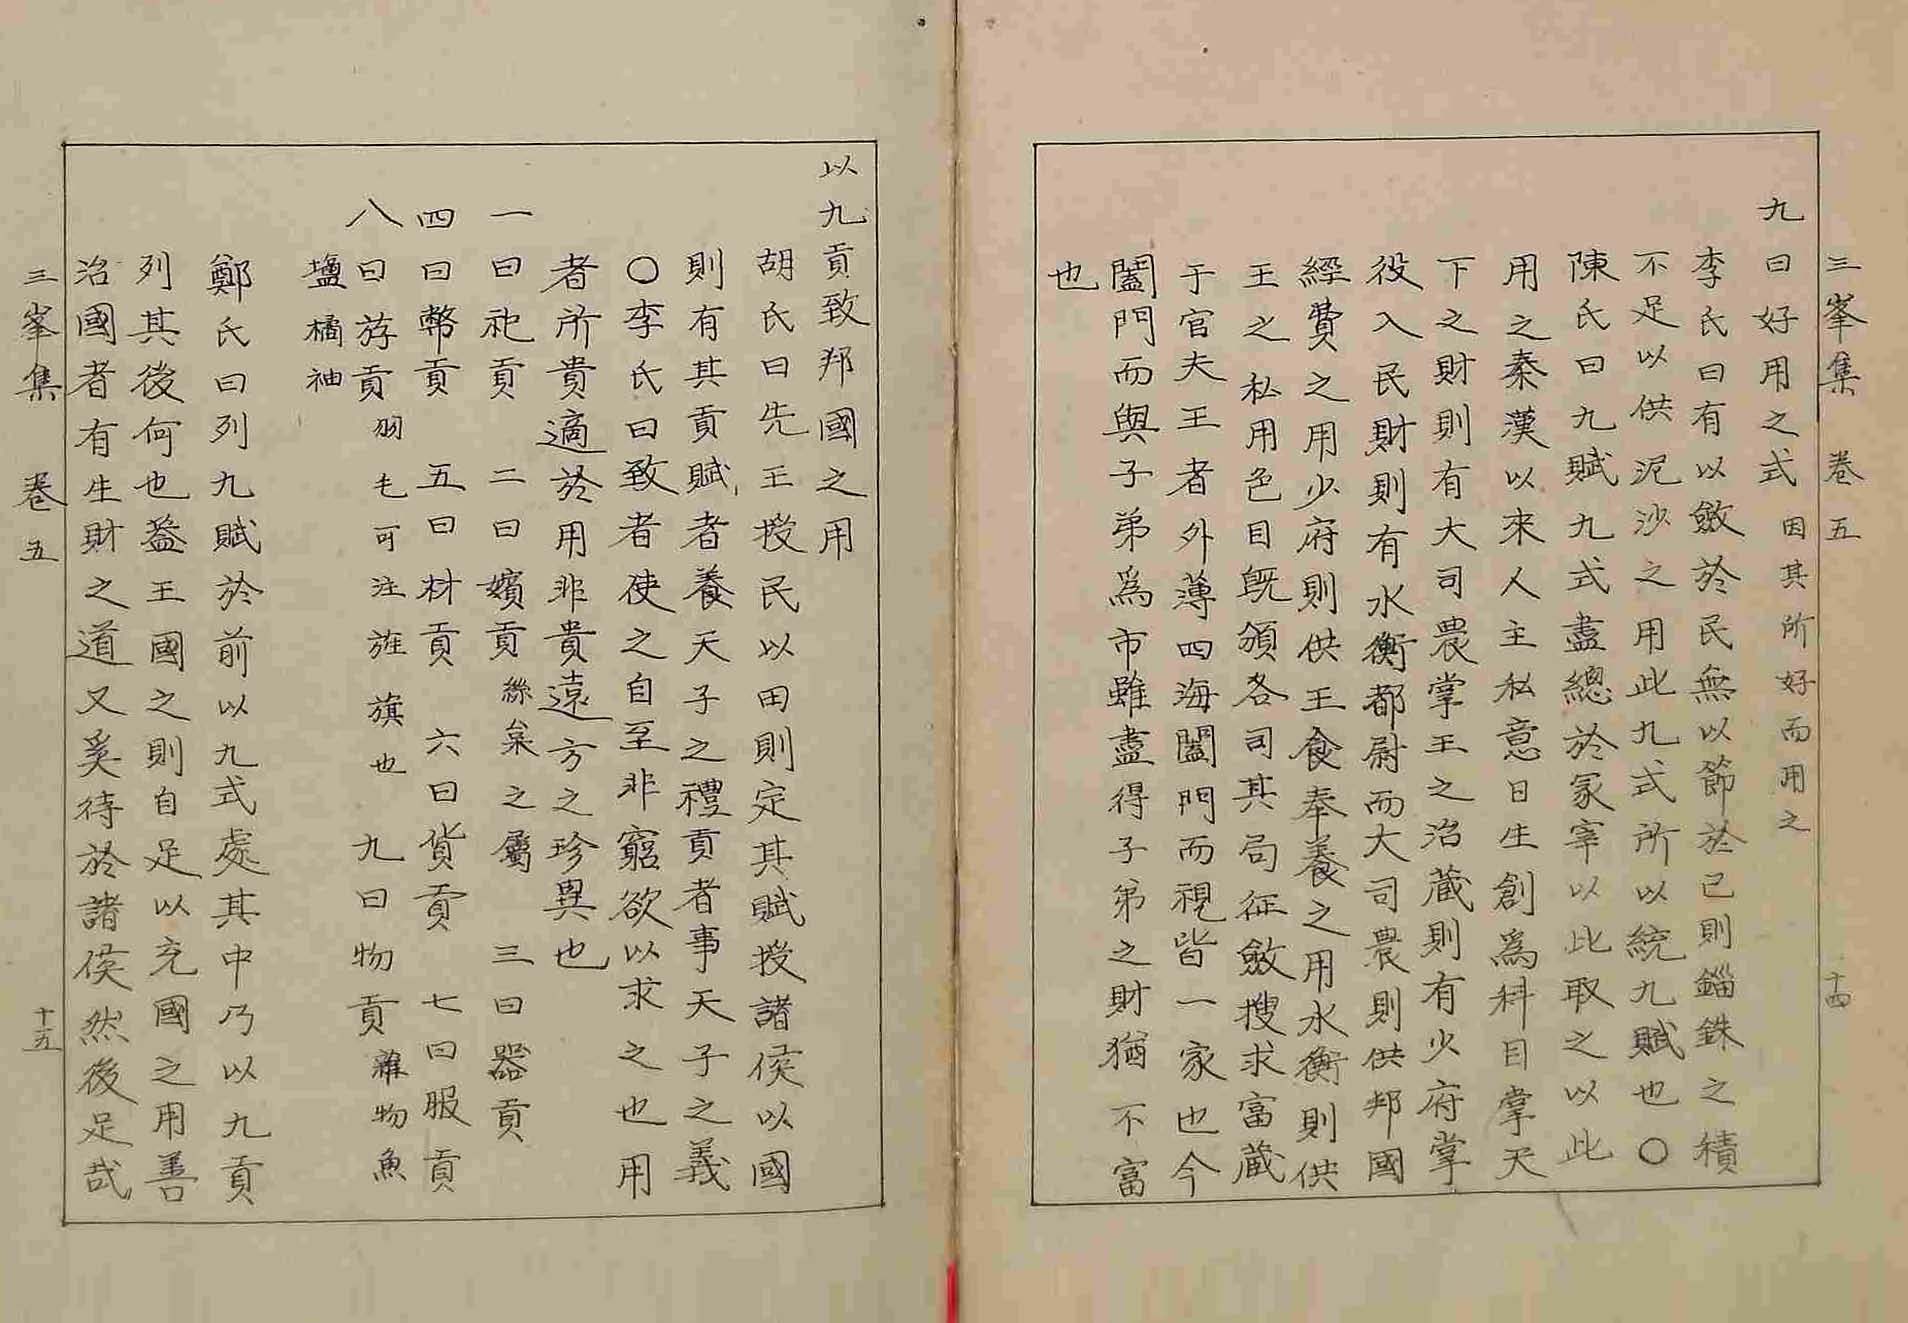 三峯集 卷五 十四
九曰好用之式 因其所好而用之
李氏曰有以斂於民無以節於已則錙銖之積
不足以供泥沙之用此九式所以統九賦也〇
陳氏曰九賦九式盡總於冢宰以此取之以此
用之秦漢以來人主私意日生創爲科目掌天
下之財則有大司農掌王之治藏則有少府掌
役入民財則有水衡都尉而大司農則供邦國
經費之用少府則供王食奉養之用水衡則供
王之私用色目旣頒各司其局征斂搜求富藏
于官夫王者外薄四海闔門而視皆一家也今
闔門而與子弟爲市雖盡得子弟之財猶不富
也
以九貢致邦國之用
胡氏曰先王授民以田則定其賦授諸侯以國
則有其貢賦者養天子之禮貢者事天子之義
〇李氏曰致者使之自至非窮欲以求之也用
者所貴適於用非貴遠方之珍異也
一曰祀貢 二曰嬪貢 絲枲之屬 三曰器貢
四曰幣貢 五曰材貢 六曰貨貢 七曰服貢
八曰斿貢 羽毛可注旌旗也 九曰物貢 雜物魚
塩橘袖
鄭氏曰列九賦於前以九式處其中乃以九貢
列其後何也蓋王國之則自足以充國之用善
治國者有生財之道又奚待於諸侯然後足哉
三峯集 卷五 十五